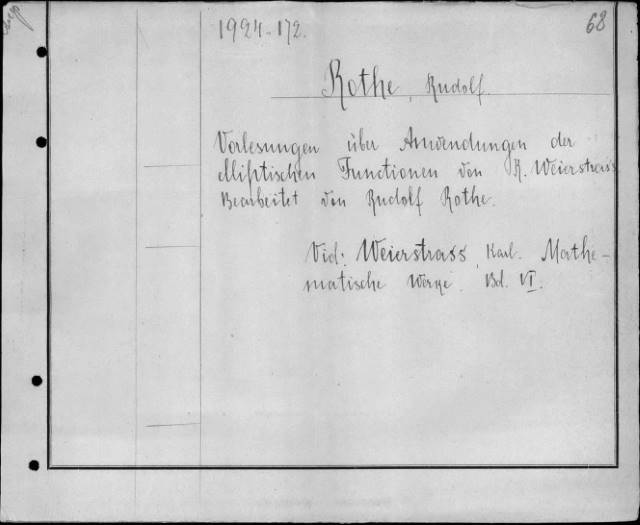 1924-172.
68
Rothe, Rudolf.
Vorlesungen über Anwendungen der
elliptischen Functionen von K. Weierstrass
Bearbeitet von Rudolf Rothe.
Vid: Weierstrass, Karl. Mathe-
matische Werke. Bd. VI.